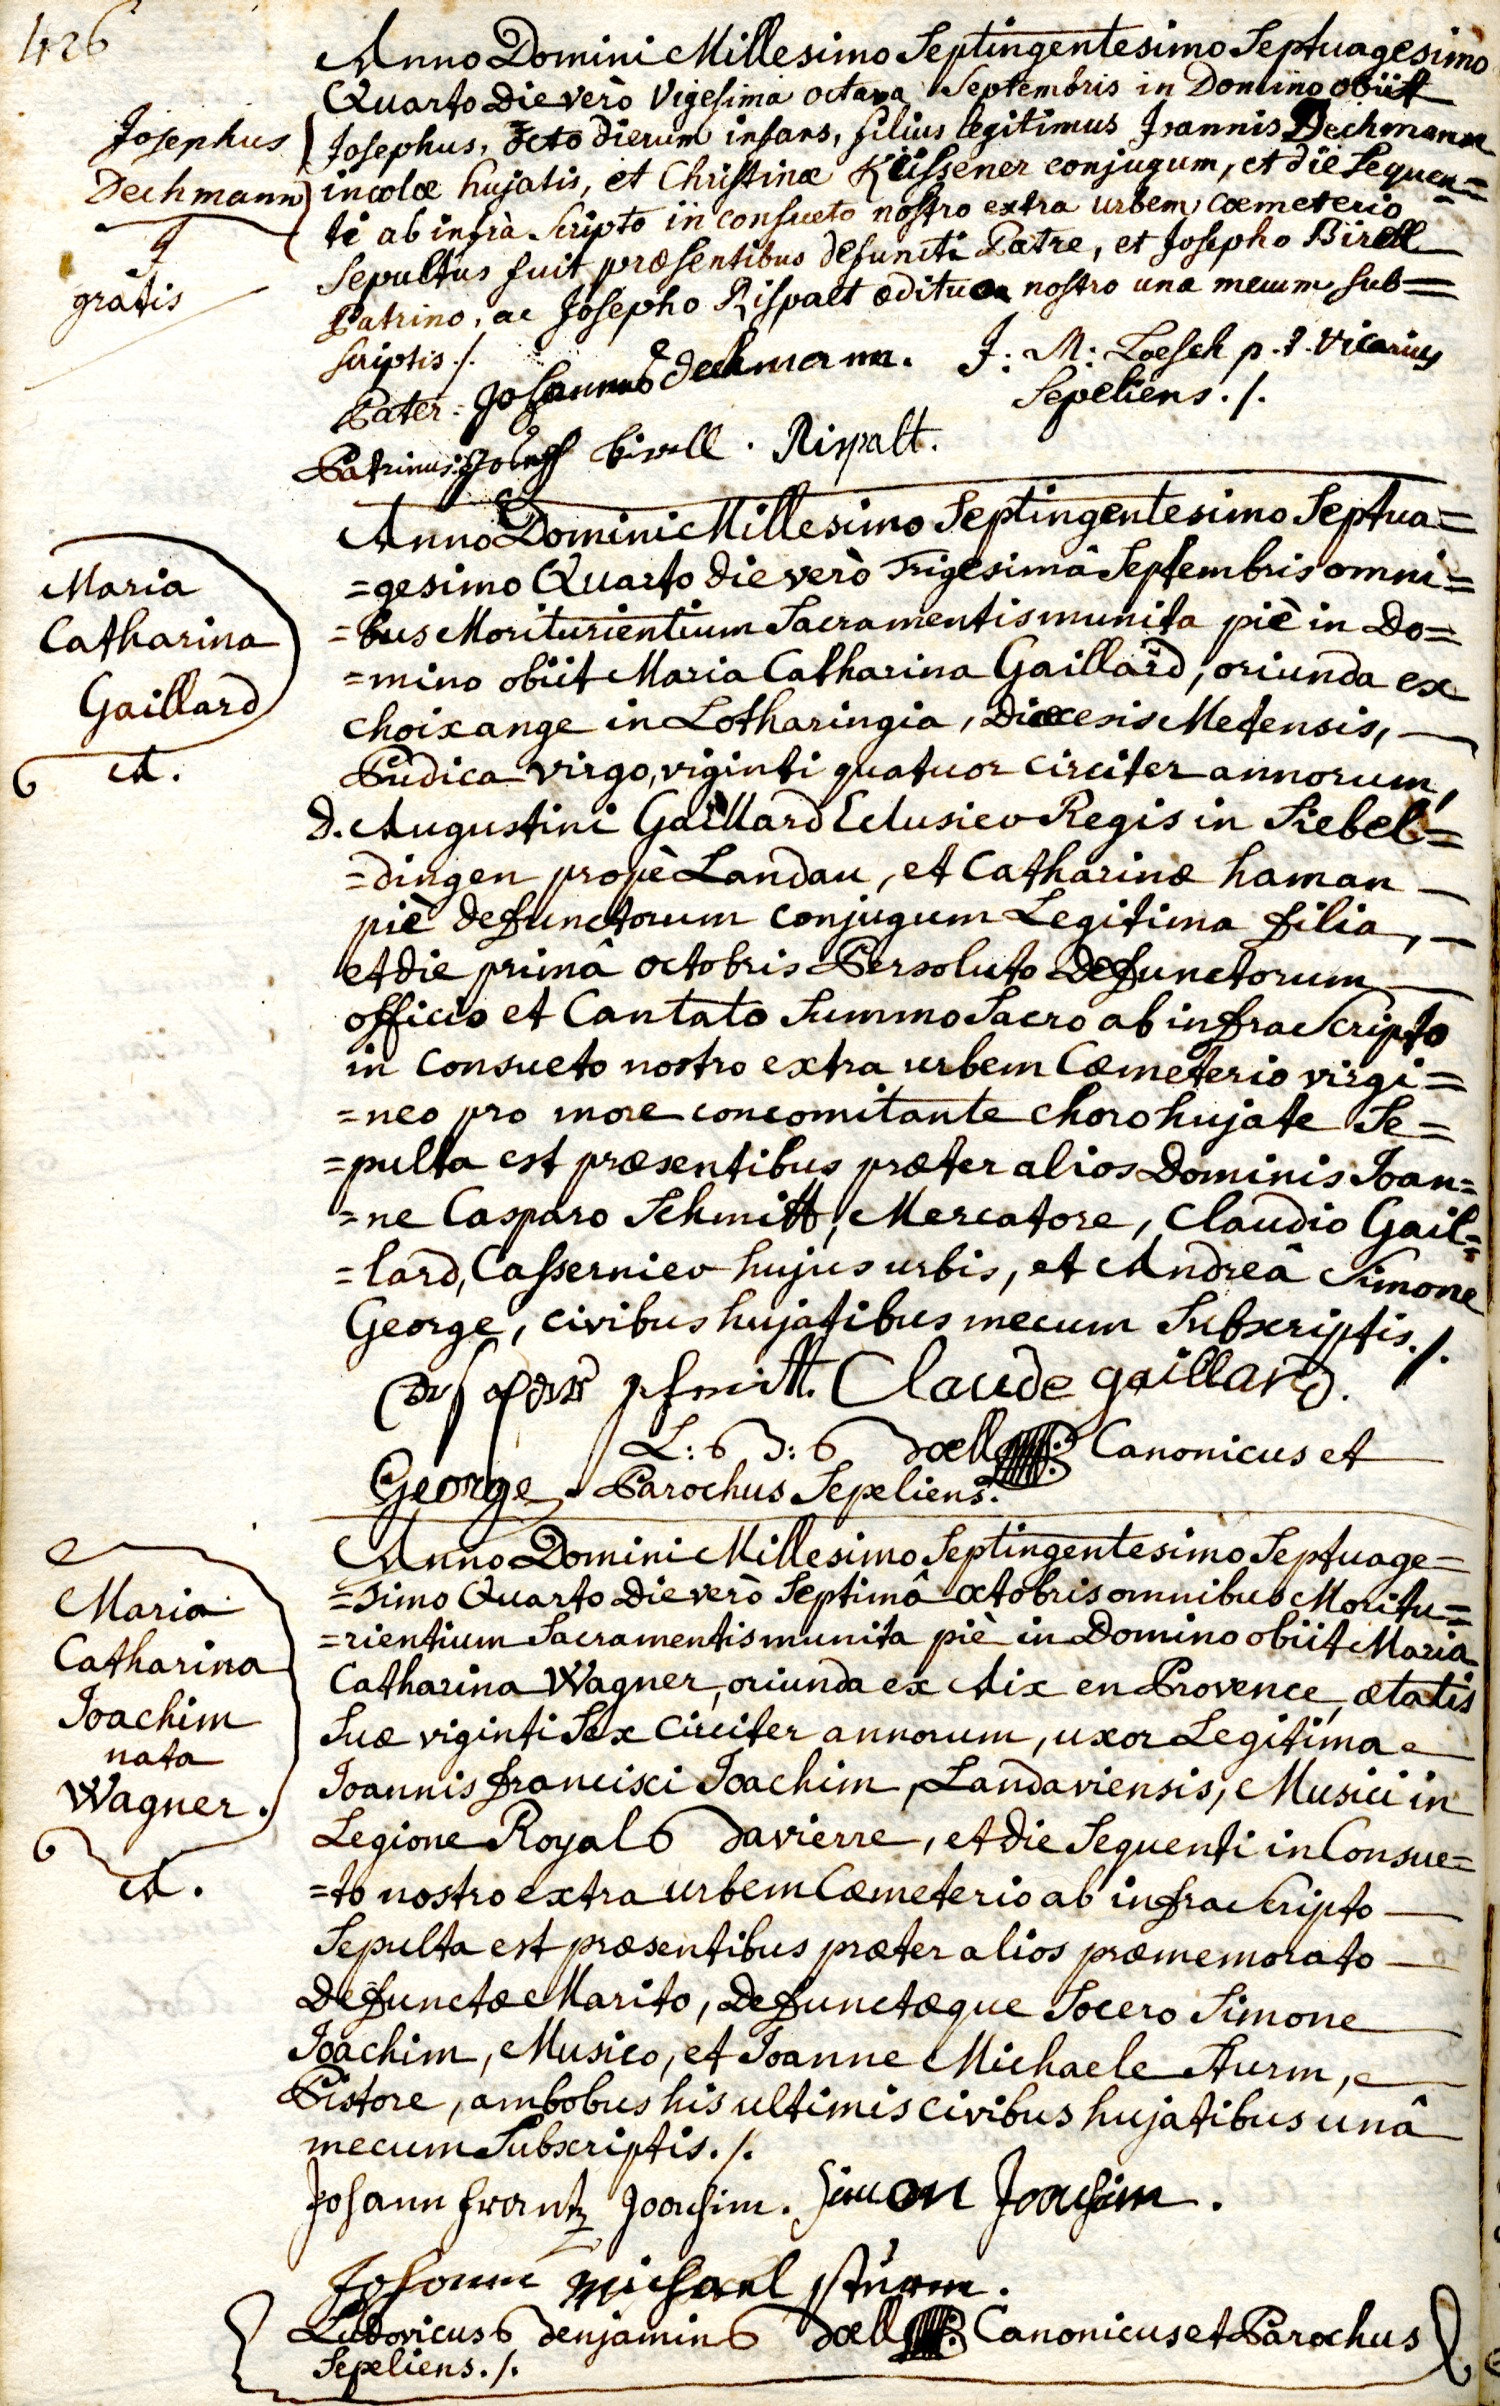 426
Anno Domini Millesimo Septingentesimo Septuagesimo
Quarto Die verò Vigesima octava Septembris in Domino obiit
Josephus
Dechmann
gratis
Josephus, octo dierum infans, filius legitimus Joannis Dechmann
incolæ hujatis, et Christinæ Küssener conjugum, et die sequen=
ti ab infrà scripto in consueto nostro extra urbem coemeterio
sepultus fuit præsentibus defuncti Patre, et Josepho Birell
Patrino, ac Josepho Rispalt ædituo nostro una mecum sub=
scriptis ./.
Pater: Johannes Dechmann. J: M: Loesch p. t. Vicarius
Sepeliens ./.
Patrinus: Joseph birell . Rispalt.
Maria
Catharina
Gaillard
A.
Anno Domini Millesimo Septingentesimo Septua=
=gesimo Quarto die verò Trigesimâ Septembris omni=
=bus Moriturientium Sacramentis munita piè in Do=
=mino obiit Maria Catharina Gaillard, oriunda ex
choixange in Lotharingia, Diœcesis Metensis,
Pudica virgo, viginti quatuor circiter annorum,
D. Augustini Gaillard Eclusieo Regis in Siebel=
=dingen propè Landau, et Catharinæ haman
piè defunctorum conjugum Legitima filia,
et die primâ octobris Persoluto Defunctorum
officio et Cantato Summo Sacro ab infra Scripto
in consueto nostro extra urbem Cœmeterio virgi=
=neo pro more concomitante choro hujate Se=
=pulta est præsentibus præter alios Dominis Ioan=
=ne Casparo Schmitt, Mercatore, Claudio Gail=
=lard, Cassernieo hujus urbis, et Andreâ Simone
George, civibus hujatibus mecum Subscriptis ./.
Casspar schmitt. Claude gaillard.
L: B: Doell Canonicus et
George. Parochus Sepeliens.
Maria
Catharina
Ioachim
nata
Wagner.
A.
Anno Domini Millesimo Septingentesimo Septuage=
=simo Quarto Die verò Septimâ octobris omnibus Moritu=
=rientium Sacramentis munita piè in Domino obiit Maria
Catharina Wagner, oriunda ex Aix en Provence, ætatis
Suæ viginti Sex circiter annorum, uxor Legitima
Ioannis francisci Ioachim, Landaviensis, Musici in
Legione Royal Bavierre, et die Sequenti in Consue=
=to nostro extra urbem Cœmeterio ab infra Scripto
Sepulta est præsentibus præter alios præmemorato
Defunctæ Marito, Defunctæque Socero Simone
Ioachim, Musico, et Ioanne Michaele Sturm,
Pistore, ambobus his ultimis civibus hujatibus unâ
mecum Subscriptis ./.
Johann frantz Joachim. Simon Joachim.
Johann michael sturm.
Ludovicus Benjamin Doell Canonicus et Parochus
Sepeliens ./.